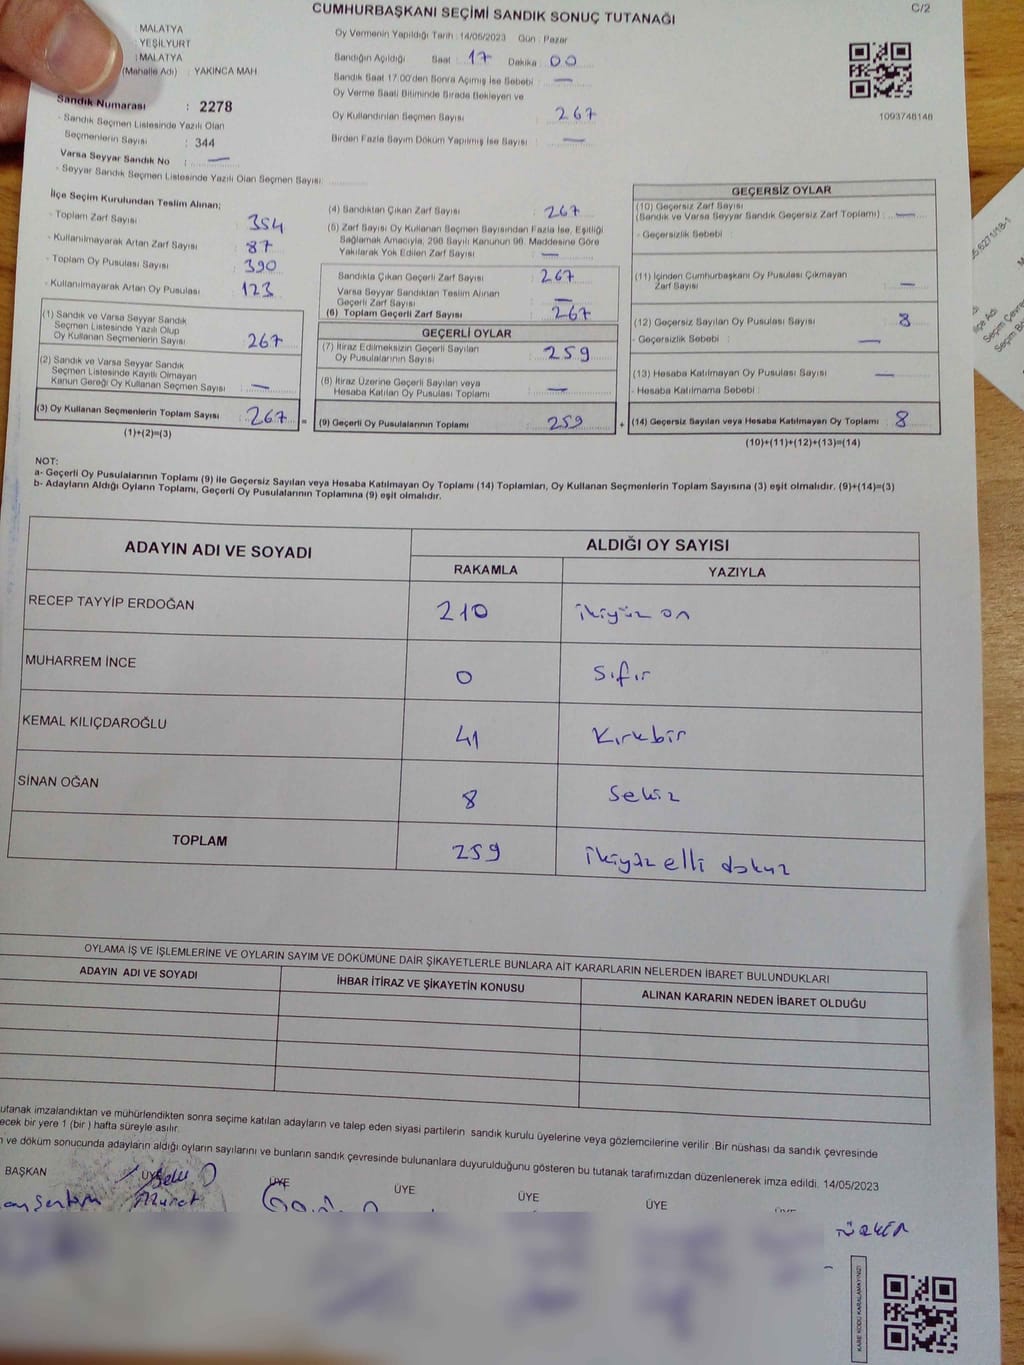 CUMHURBAŞKANI SEÇİMİ SANDIK SONUÇ TUTANAĞI
C/2
: MALATYA
: YEŞİLYURT
: MALATYA
(Mahalle Adı) : YAKINCA MAH
Sandık Numarası : 2278
- Sandık Seçmen Listesinde Yazılı Olan
Seçmenlerin Sayısı : 344
Varsa Seyyar Sandık No : —
- Seyyar Sandık Seçmen Listesinde Yazılı Olan Seçmen Sayısı:
Oy Vermenin Yapıldığı Tarih : 14/05/2023 Gün : Pazar
Sandığın Açıldığı Saat 17 Dakika 00
Sandık Saat 17:00'den Sonra Açımış İse Sebebi : —
Oy Verme Saati Bitiminde Sırada Bekleyen ve
Oy Kullandırılan Seçmen Sayısı 267
Birden Fazla Sayım Döküm Yapılmış İse Sayısı : —
1093748148
İlçe Seçim Kurulundan Teslim Alınan;
- Toplam Zarf Sayısı : 354
- Kullanılmayarak Artan Zarf Sayısı : 87
- Toplam Oy Pusulası Sayısı : 390
- Kullanılmayarak Artan Oy Pusulası : 123
(1) Sandık ve Varsa Seyyar Sandık
Seçmen Listesinde Yazılı Olup
Oy Kullanan Seçmenlerin Sayısı : 267
(2) Sandık ve Varsa Seyyar Sandık
Seçmen Listesinde Kayıtlı Olmayan
Kanun Gereği Oy Kullanan Seçmen Sayısı : —
(3) Oy Kullanan Seçmenlerin Toplam Sayısı : 267 =
(1)+(2)=(3)
(4) Sandıktan Çıkan Zarf Sayısı : 267
(5) Zarf Sayısı Oy Kullanan Seçmen Sayısından Fazla İse, Eşitliği
Sağlamak Amacıyla, 298 Sayılı Kanunun 98. Maddesine Göre
Yakılarak Yok Edilen Zarf Sayısı : —
Sandıkla Çıkan Geçerli Zarf Sayısı : 267
Varsa Seyyar Sandıktan Teslim Alınan
Geçerli Zarf Sayısı : —
(6) Toplam Geçerli Zarf Sayısı : 267
GEÇERLİ OYLAR
(7) İtiraz Edilmeksizin Geçerli Sayılan
Oy Pusulalarının Sayısı : 259
(8) İtiraz Üzerine Geçerli Sayılan veya
Hesaba Katılan Oy Pusulası Toplamı : —
(9) Geçerli Oy Pusulalarının Toplamı : 259 +
GEÇERSİZ OYLAR
(10) Geçersiz Zarf Sayısı
(Sandık ve Varsa Seyyar Sandık Geçersiz Zarf Toplamı) : —
- Geçersizlik Sebebi :
(11) İçinden Cumhurbaşkanı Oy Pusulası Çıkmayan
Zarf Sayısı : —
(12) Geçersiz Sayılan Oy Pusulası Sayısı : 8
- Geçersizlik Sebebi : —
(13) Hesaba Katılmayan Oy Pusulası Sayısı : —
- Hesaba Katılmama Sebebi :
(14) Geçersiz Sayılan veya Hesaba Katılmayan Oy Toplamı : 8
(10)+(11)+(12)+(13)=(14)
NOT:
a- Geçerli Oy Pusulalarının Toplamı (9) ile Geçersiz Sayılan veya Hesaba Katılmayan Oy Toplamı (14) Toplamları, Oy Kullanan Seçmenlerin Toplam Sayısına (3) eşit olmalıdır. (9)+(14)=(3)
b- Adayların Aldığı Oyların Toplamı, Geçerli Oy Pusulalarının Toplamına (9) eşit olmalıdır.
ADAYIN ADI VE SOYADI ALDIĞI OY SAYISI
RAKAMLA YAZIYLA
RECEP TAYYİP ERDOĞAN 210 ikiyüz on
MUHARREM İNCE 0 Sıfır
KEMAL KILIÇDAROĞLU 41 Kırkbir
SİNAN OĞAN 8 Sekiz
TOPLAM 259 ikiyüz elli dokuz
OYLAMA İŞ VE İŞLEMLERİNE VE OYLARIN SAYIM VE DÖKÜMÜNE DAİR ŞİKAYETLERLE BUNLARA AİT KARARLARIN NELERDEN İBARET BULUNDUKLARI
ADAYIN ADI VE SOYADI İHBAR İTİRAZ VE ŞİKAYETİN KONUSU ALINAN KARARIN NEDEN İBARET OLDUĞU
utanak imzalandıktan ve mühürlendikten sonra seçime katılan adayların ve talep eden siyasi partilerin sandık kurulu üyelerine veya gözlemcilerine verilir .Bir nüshası da sandık çevresinde
ecek bir yere 1 (bir ) hafta süreyle asılır.
ve döküm sonucunda adayların aldığı oyların sayılarını ve bunların sandık çevresinde bulunanlara duyurulduğunu gösteren bu tutanak tarafımızdan düzenlenerek imza edildi. 14/05/2023
BAŞKAN ÜYE ÜYE ÜYE ÜYE ÜYE
Murat
KARE KODU KARALAMAYINIZ!